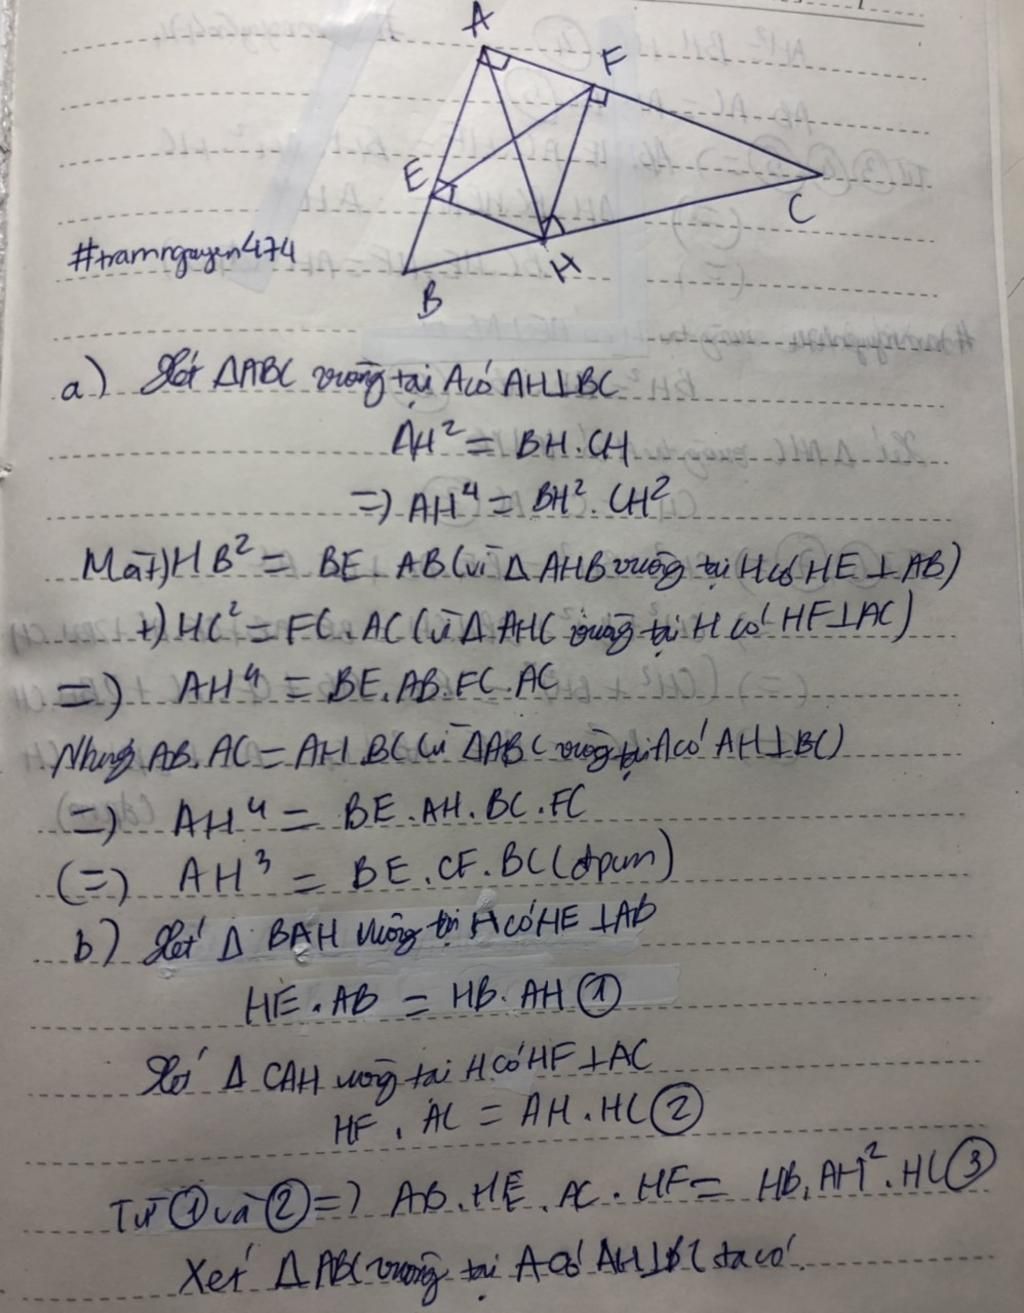 A
F
E
C
#tramnguyen474
H
B
a) Xét ΔABC vuông tại A có AH⊥BC
AH² = BH.CH
=) AH⁴ = BH². CH²
Mà +) HB² = BE. AB (vì Δ AHB vuông tại H có HE ⊥ AB)
+) HC² = FC. AC (vì Δ AHC vuông tại H có HF⊥AC)
=) AH⁴ = BE.AB.FC.AC
Nhưng AB.AC = AH.BC (vì ΔABC vuông tại A có AH⊥BC)
=) AH⁴ = BE.AH.BC.FC
(=) AH³ = BE.CF.BC (đpcm)
b) Xét Δ BAH vuông tại H có HE ⊥AB
HE.AB = HB.AH ①
Xét Δ CAH vuông tại H có HF⊥AC
HF. AC = AH.HC ②
Từ ① và ② =) AB.HE.AC.HF = HB.AH².HC ③
Xét ΔABC vuông tại A có AH⊥BC ta có.